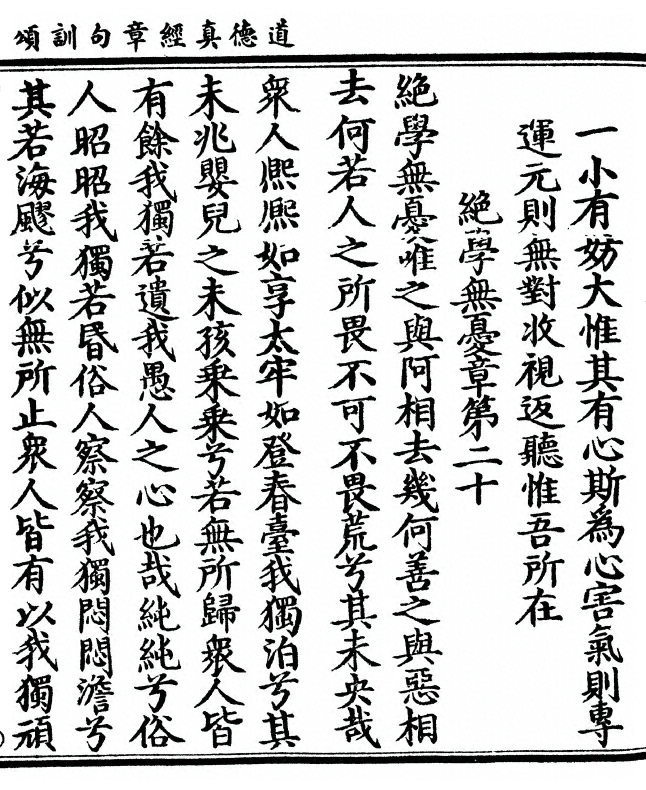 道德真經章句訓頌
一小有妨大惟其有心斯為心害氣則專
運元則無對收視返聽惟吾所在
絕學無憂章第二十
絕學無憂唯之與阿相去幾何善之與惡相
去何若人之所畏不可不畏荒兮其未央哉
眾人熈熈如享太牢如登春臺我獨泊兮其
未兆嬰兒之未孩乘乘兮若無所歸眾人皆
有餘我獨若遺我愚人之心也哉純純兮俗
人昭昭我獨若昏俗人察察我獨悶悶澹兮
其若海飂兮似無所止眾人皆有以我獨頑